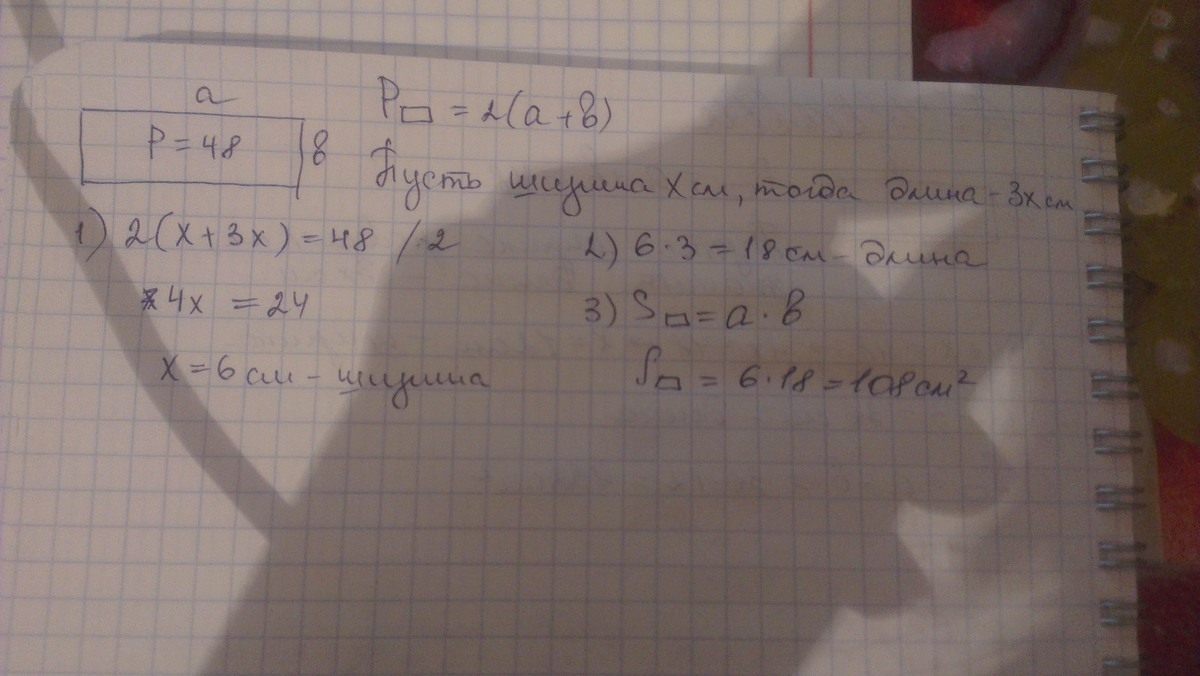 a
P▭ = 2(a+в)
P = 48
в
Пусть ширина x см, тогда длина - 3x см
1) 2(x + 3x) = 48 /:2
4x = 24
x = 6 см - ширина
2) 6 · 3 = 18 см - длина
3) S▭ = a · в
S▭ = 6 · 18 = 108 см²